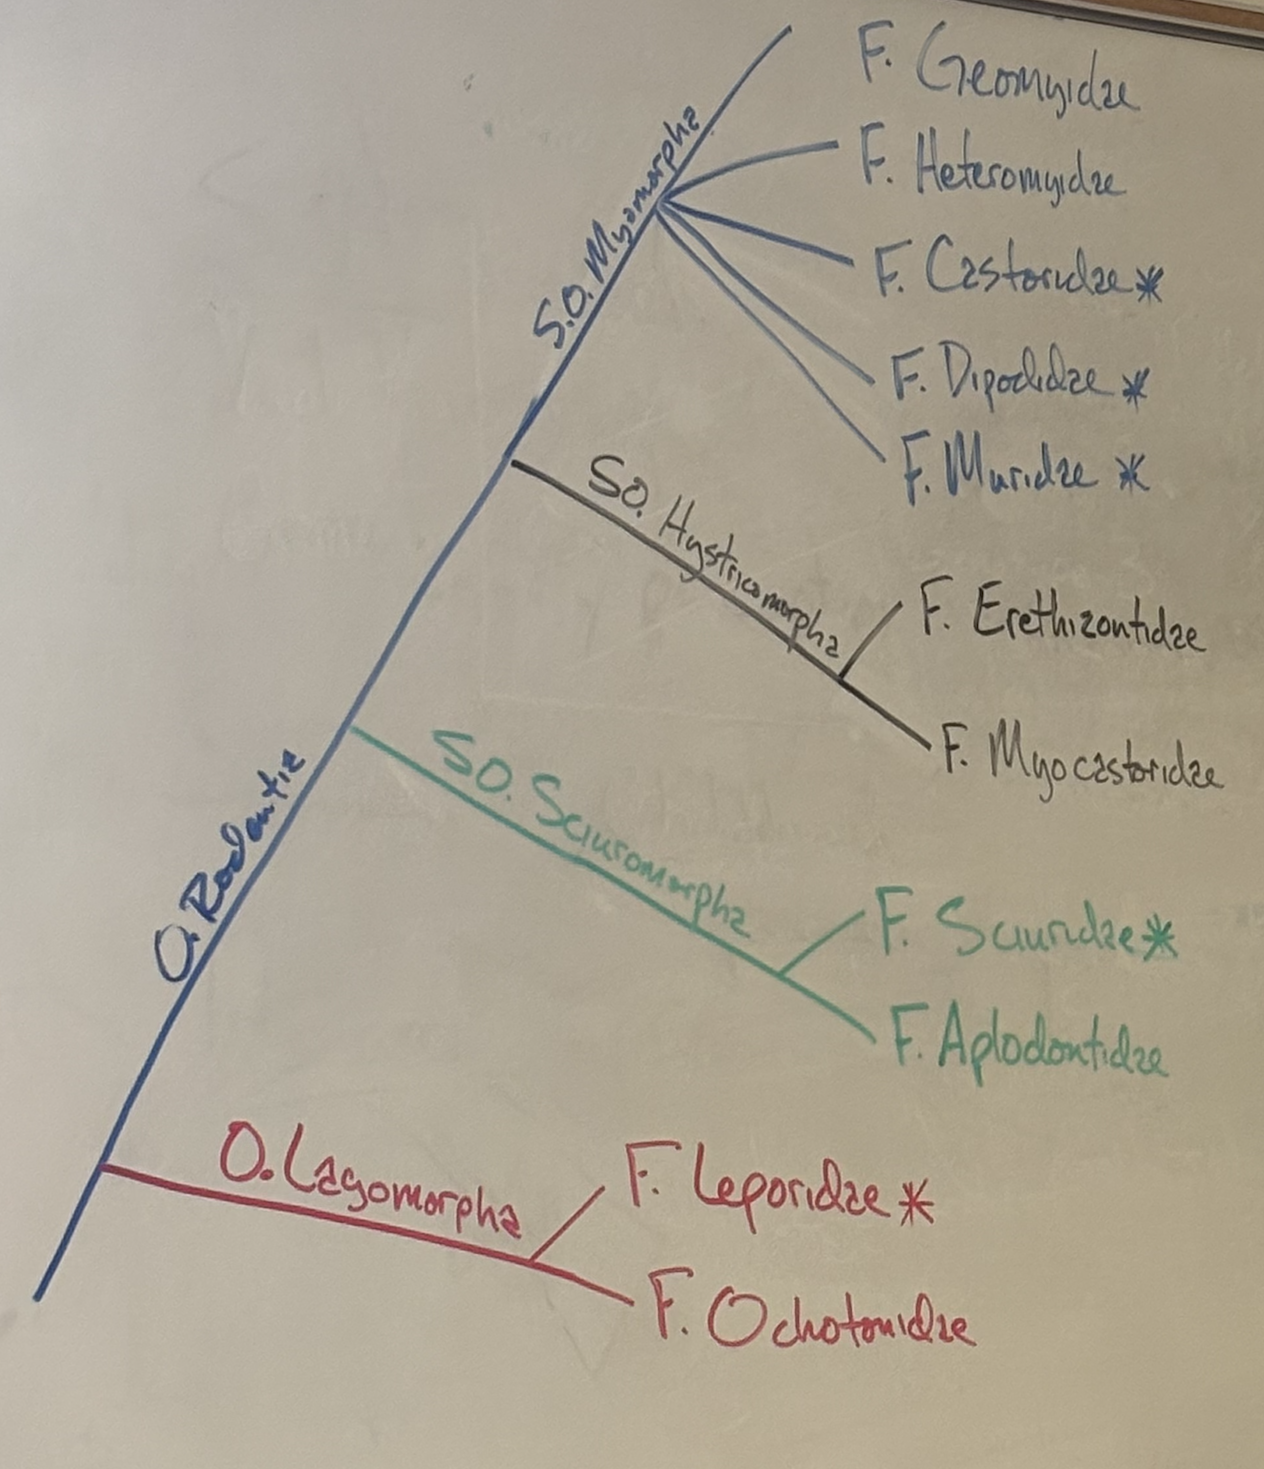 F. Geomyidae
F. Heteromyidae
S.O. Myomorpha
F. Castoridae*
F. Dipodidae*
F. Muridae *
SO. Hystricomorpha
F. Erethizontidae
F. Myocastoridae
O. Rodentia
SO. Sciuromorpha
F. Sciuridae*
F. Aplodontidae
O. Lagomorpha
F. Leporidae*
F. Ochotonidae